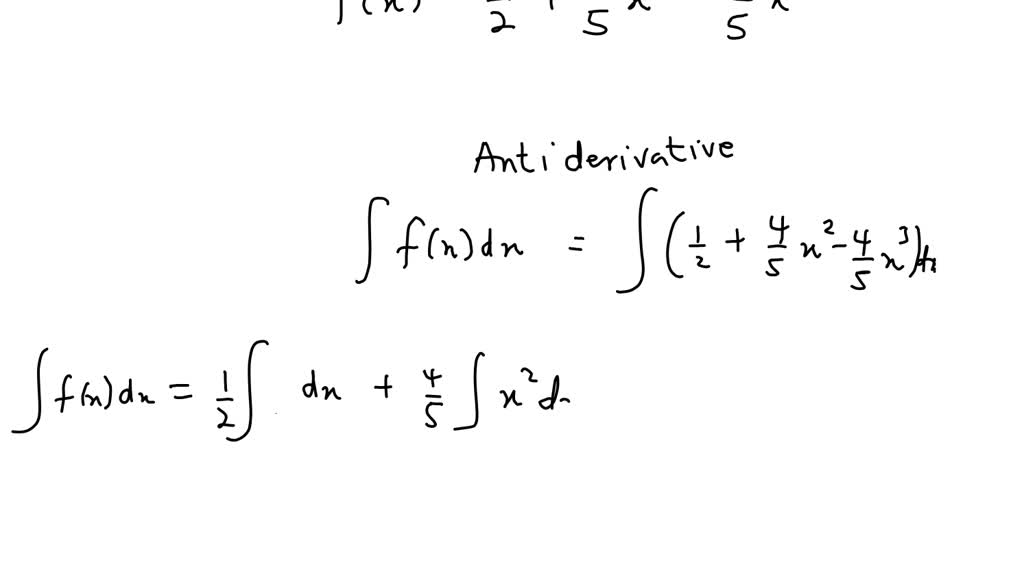 f(x) 1/2 + 4/5 x 4/5 x
Antiderivative
∫ f(x) dx = ∫ (1/2 + 4/5 x² - 4/5 x³) dx
∫ f(x) dx = 1/2 ∫ dx + 4/5 ∫ x² d